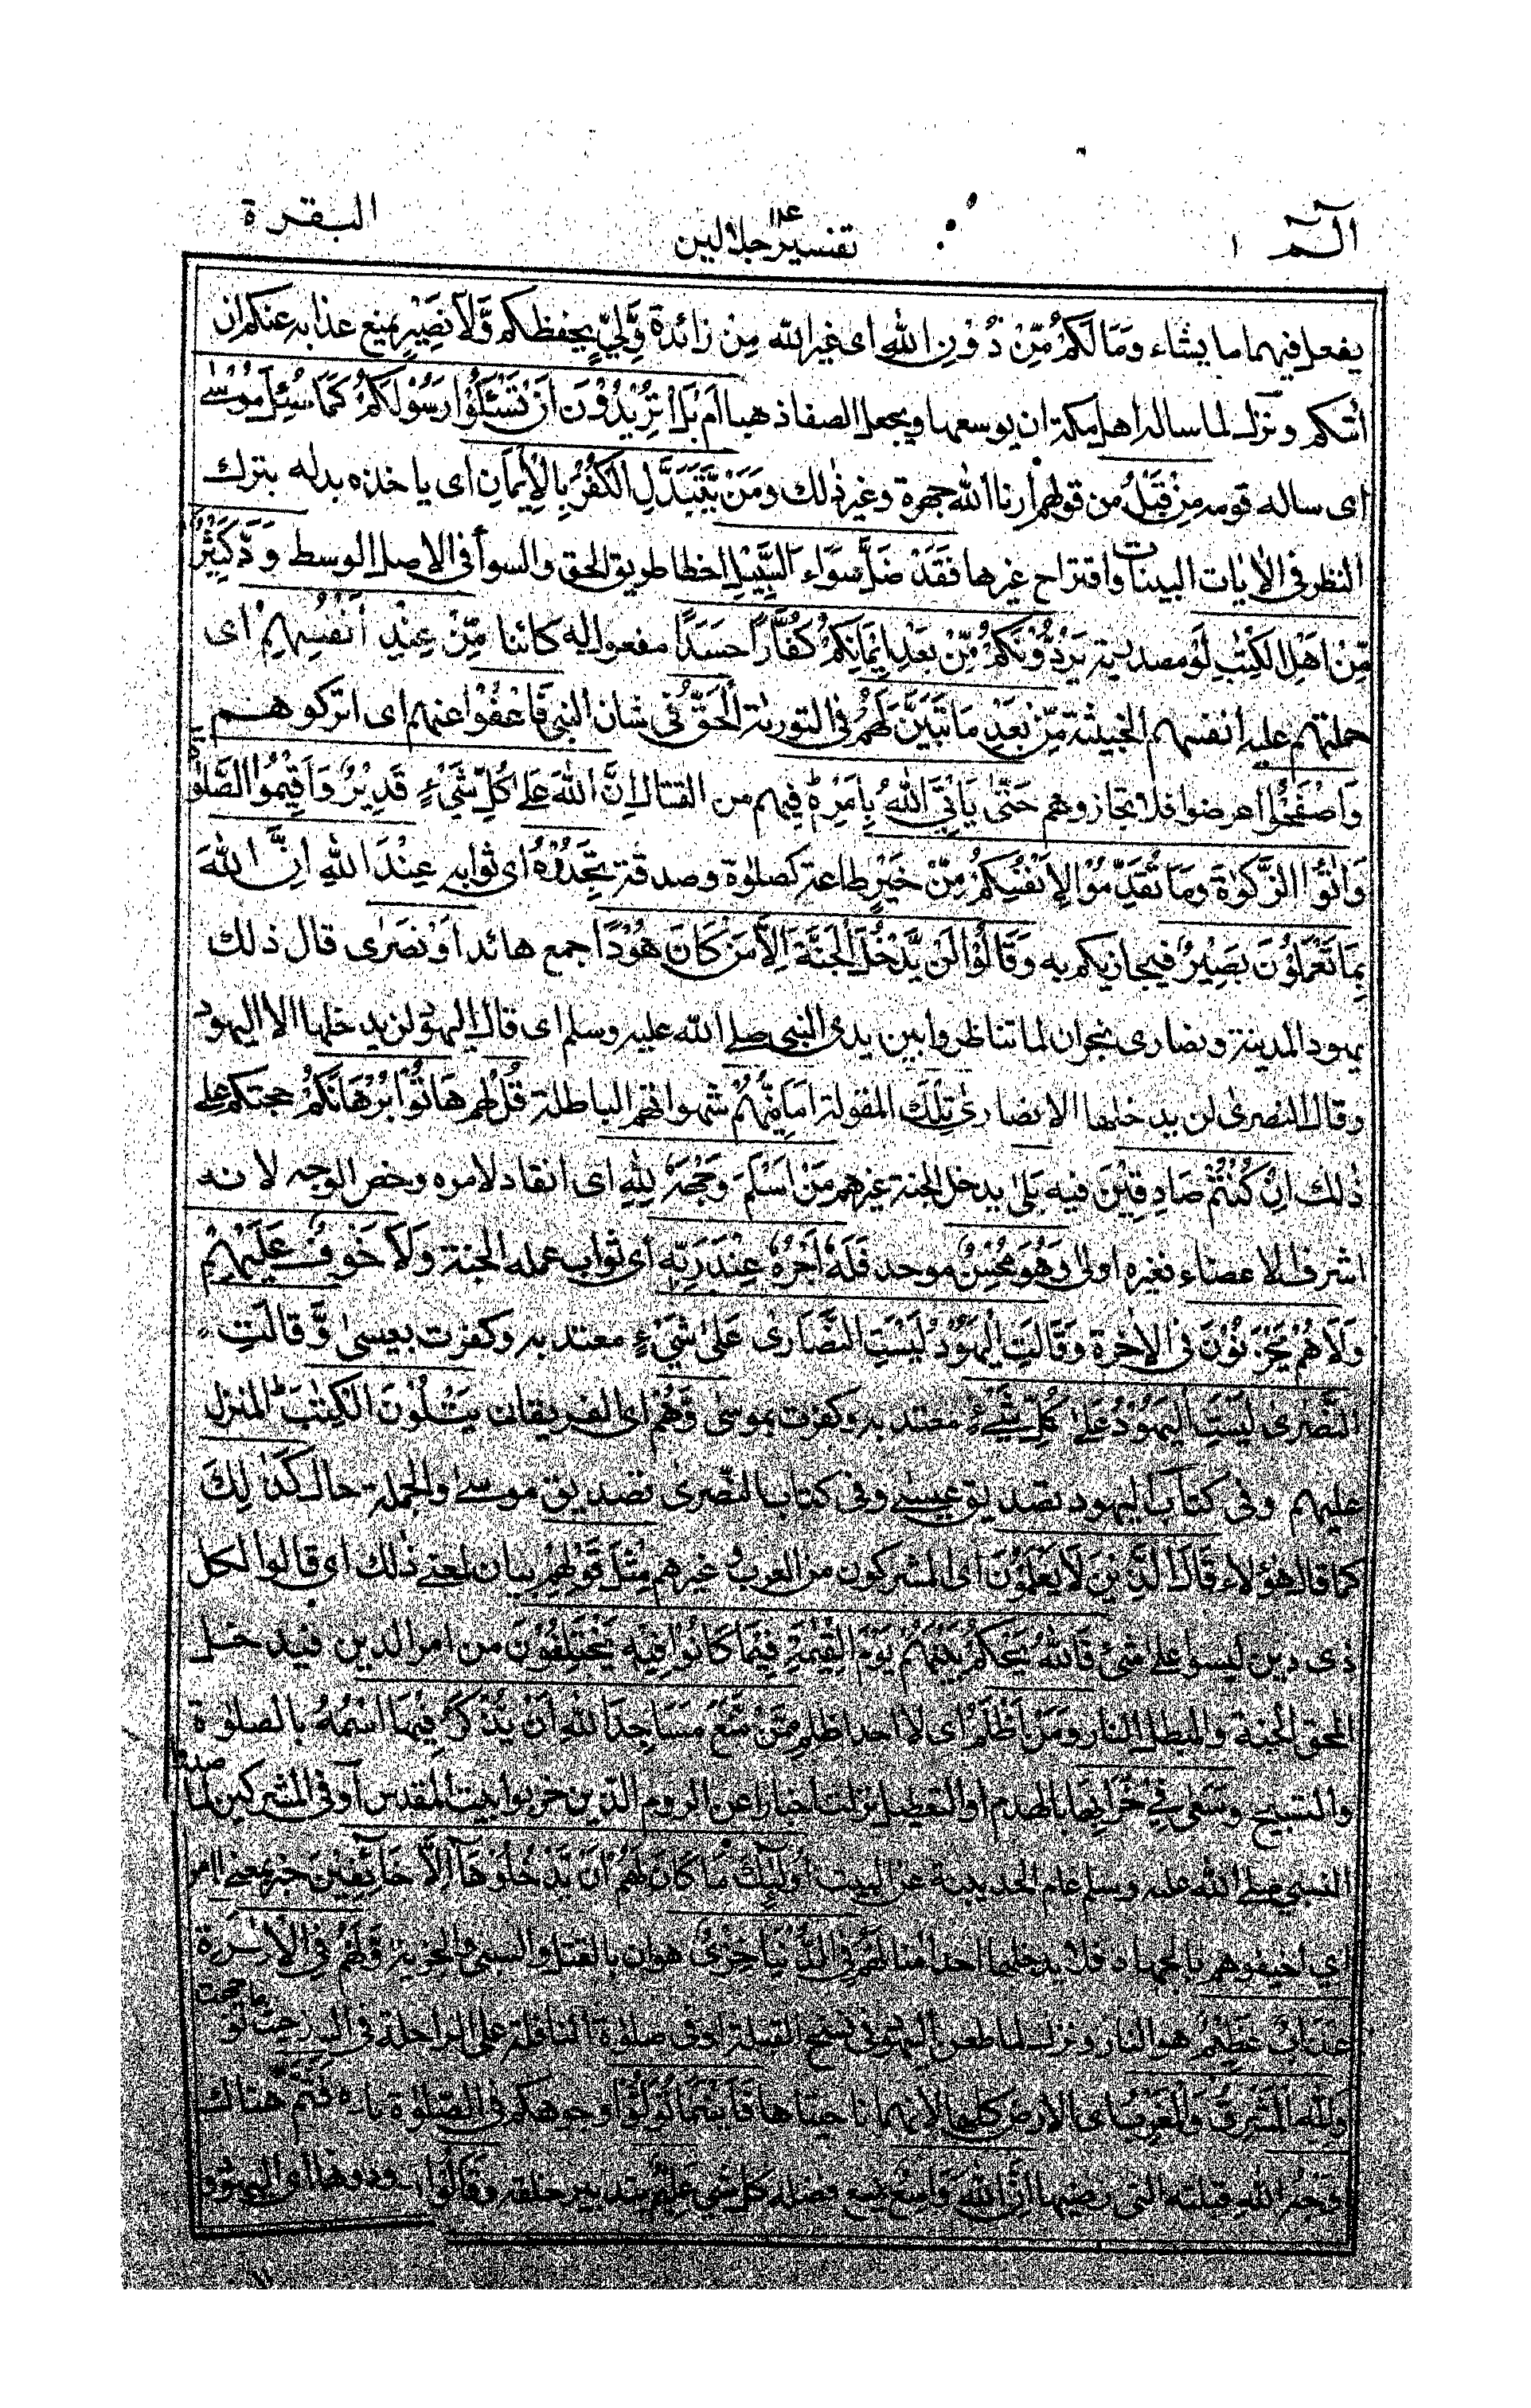 الٓمٓ ١
تفسير جلالين
البقرة
يفعل فيهما ما يشاء وَمَا لَكُمْ مِّنْ دُوْنِ اللّٰهِ اى غير الله مِنْ زائدة وَّلِيٍّ يحفظكم وَّلَا نَصِيْرٍ يمنع عذابه عنكم ان
أتىكم ونزل لما ساله اهل مكة ان يوسعها ويجعل الصفا ذهبا اَمْ بل أ تُرِيْدُوْنَ اَنْ تَسْئَلُوْا رَسُوْلَكُمْ كَمَا سُئِلَ مُوْسٰى
اى ساله قومه مِنْ قَبْلُ من قولهم أرنا الله جهرة وغير ذلك وَمَنْ يَّتَبَدَّلِ الْكُفْرَ بِالْاِيْمَانِ اى ياخذه بدله بترك
النظر فى الاٰيات البينات واقتراح غيرها فَقَدْ ضَلَّ سَوَاءَ السَّبِيْلِ اخطا طريق الحق والسوأ فى الاصل الوسط وَدَّ كَثِيْرٌ
مِّنْ اَهْلِ الْكِتٰبِ لَوْ مصدرية يَرُدُّوْنَكُمْ مِّنْ بَعْدِ اِيْمَانِكُمْ كُفَّارًا حَسَدًا مفعول له كائنا مِّنْ عِنْدِ اَنْفُسِهِمْ اى
حملتهم عليه انفسهم الخبيثة مِّنْ بَعْدِ مَا تَبَيَّنَ لَهُمُ فى التورىٰة الْحَقُّ فى شان النبى فَاعْفُوْا عنهم اى اتركوهم
وَاصْفَحُوْا اعرضوا فلا تجازوهم حَتّٰى يَاْتِيَ اللّٰهُ بِاَمْرِهٖ فيهم من القتال اِنَّ اللّٰهَ عَلٰى كُلِّ شَيْءٍ قَدِيْرٌ وَاَقِيْمُوا الصَّلٰوةَ
وَاٰتُوا الزَّكٰوةَ وَمَا تُقَدِّمُوْا لِاَنْفُسِكُمْ مِّنْ خَيْرٍ طاعة كصلوٰة وصدقة تَجِدُوْهُ اى ثوابه عِنْدَ اللّٰهِ اِنَّ اللّٰهَ
بِمَا تَعْمَلُوْنَ بَصِيْرٌ فيجازيكم به وَقَالُوْا لَنْ يَّدْخُلَ الْجَنَّةَ اِلَّا مَنْ كَانَ هُوْدًا جمع هائد اَوْ نَصٰرٰى قال ذلك
يهود المدينة ونصارى نجران لما تناظروا بين يدى النبى صلى الله عليه وسلم اى قال اليهود لن يدخلها الا اليهود
وقال النصرىٰ لن يدخلها الا نصارىٰ تِلْكَ المقولة اَمَانِيُّهُمْ شهواتهم الباطلة قُلْ لهم هَاتُوْا بُرْهَانَكُمْ حجتكم على
ذلك اِنْ كُنْتُمْ صَادِقِيْنَ فيه بَلٰى يدخل الجنة غيرهم مَنْ اَسْلَمَ وَجْهَهٗ لِلّٰهِ اى انقاد لامره وخص الوجه لانه
اشرف الاعضاء فغيره اولى وَهُوَ مُحْسِنٌ موحد فَلَهٗ اَجْرُهٗ عِنْدَ رَبِّهٖ اى ثواب عمله الجنة وَلَا خَوْفٌ عَلَيْهِمْ
وَلَا هُمْ يَحْزَنُوْنَ فى الاٰخرة وَقَالَتِ الْيَهُوْدُ لَيْسَتِ النَّصَارٰى عَلٰى شَيْءٍ معتد به وكفرت بعيسىٰ وَّقَالَتِ
النَّصٰرٰى لَيْسَتِ الْيَهُوْدُ عَلٰى شَيْءٍ معتد به وكفرت بموسىٰ وَّهُمْ اى الفريقان يَتْلُوْنَ الْكِتٰبَ المنزل
عليهم وفى كتاب اليهود تصديق عيسى وفى كتاب النصرىٰ تصديق موسى والجملة حال كَذٰلِكَ
كما قال هؤلاء قَالَ الَّذِيْنَ لَا يَعْلَمُوْنَ اى المشركون من العرب وغيرهم مِثْلَ قَوْلِهِمْ بيان لمعنى ذلك اى قالوا لكل
ذى دين ليسوا على شئ فَاللّٰهُ يَحْكُمُ بَيْنَهُمْ يَوْمَ الْقِيٰمَةِ فِيْمَا كَانُوْا فِيْهِ يَخْتَلِفُوْنَ من امر الدين فيدخل
المحق الجنة والمبطل النار وَمَنْ اَظْلَمُ اى لا احد اظلم مِمَّنْ مَّنَعَ مَسَاجِدَ اللّٰهِ اَنْ يُّذْكَرَ فِيْهَا اسْمُهٗ بالصلوٰة
والتسبيح وَسَعٰى فِيْ خَرَابِهَا بالهدم او التعطيل نزلت اخبارا عن الروم الذين خربوا بيت المقدس او فى المشركين لما صدوا
النبى صلى الله عليه وسلم عام الحديبية عن البيت اُولٰئِكَ مَا كَانَ لَهُمْ اَنْ يَّدْخُلُوْهَا اِلَّا خَائِفِيْنَ خبر بمعنى الامر
اى اخيفوهم بالجهاد فلا يدخلها احد اٰمنا لَهُمْ فِى الدُّنْيَا خِزْيٌ هوان بالقتل والسبى والجزية وَّلَهُمْ فِى الْاٰخِرَةِ
عَذَابٌ عَظِيْمٌ هو النار ونزل لما طعن اليهود فى نسخ القبلة او فى صلوٰة النافلة على الراحلة فى السفر حيث ما توجهت
وَلِلّٰهِ الْمَشْرِقُ وَالْمَغْرِبُ اى الارض كلها لانهما ناحيتاها فَاَيْنَمَا تُوَلُّوْا وجوهكم فى الصلوٰة بامره فَثَمَّ هناك
وَجْهُ اللّٰهِ قبلته التى رضيها اِنَّ اللّٰهَ وَاسِعٌ يسع فضله كل شئ عَلِيْمٌ بتدبير خلقه وَقَالُوْا بواو ودونها اى اليهود و